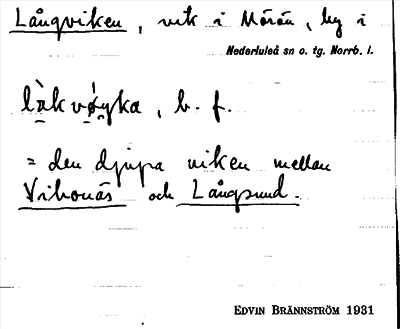 Långviken, vik i Mörön, by i
Nederluleå sn o. tg. Norrb. l.
b. f.
= den djupa viken mellan
och Långsund.
EDVIN BRÄNNSTRÖM 1931